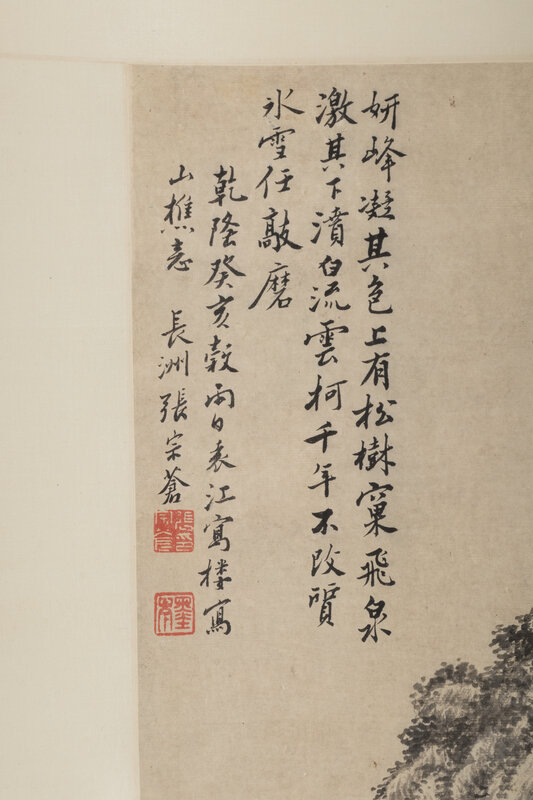 妍峰凝其色上有松樹窠飛泉
激其下濆白流雲柯千年不改質
氷雪任敲磨
乾隆癸亥穀雨日袁江寓楼寫
山樵志 長洲張宗蒼